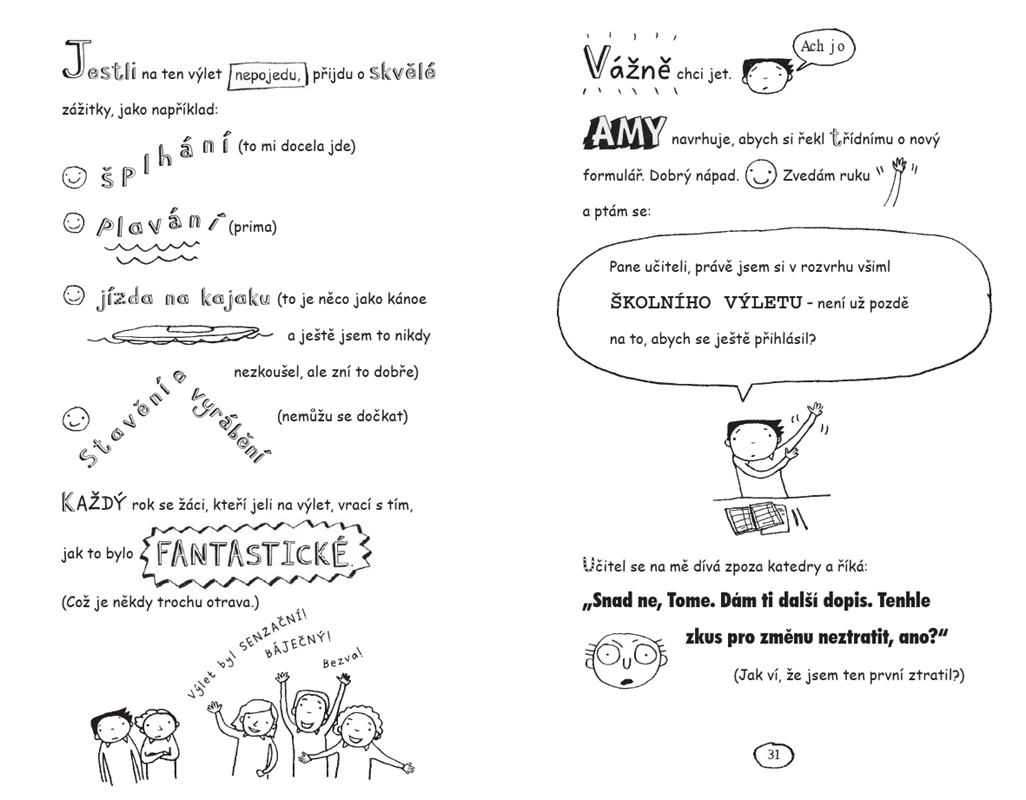 Jestli na ten výlet nepojedu, přijdu o skvělé
zážitky, jako například:
šplhání (to mi docela jde)
plavání (prima)
jízda na kajaku (to je něco jako kánoe
a ještě jsem to nikdy
nezkoušel, ale zní to dobře)
Stavění a vyrábění (nemůžu se dočkat)
KAŽDÝ rok se žáci, kteří jeli na výlet, vrací s tím,
jak to bylo FANTASTICKÉ.
(Což je někdy trochu otrava.)
Výlet byl SENZAČNÍ!
BÁJEČNÝ!
Bezva!
Vážně chci jet.
Ach jo
AMY navrhuje, abych si řekl třídnímu o nový
formulář. Dobrý nápad. Zvedám ruku
a ptám se:
Pane učiteli, právě jsem si v rozvrhu všiml
ŠKOLNÍHO VÝLETU – není už pozdě
na to, abych se ještě přihlásil?
Učitel se na mě dívá zpoza katedry a říká:
„Snad ne, Tome. Dám ti další dopis. Tenhle
zkus pro změnu neztratit, ano?“
(Jak ví, že jsem ten první ztratil?)
31